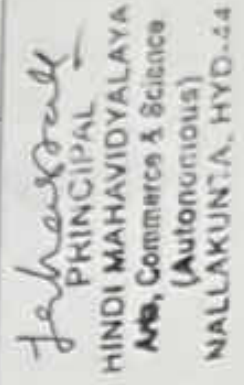 PRINCIPAL
HINDI MAHAVIDYALAYA
Arts, Commerce & Science
(Autonomous)
NALLAKUNTA, HYD-44